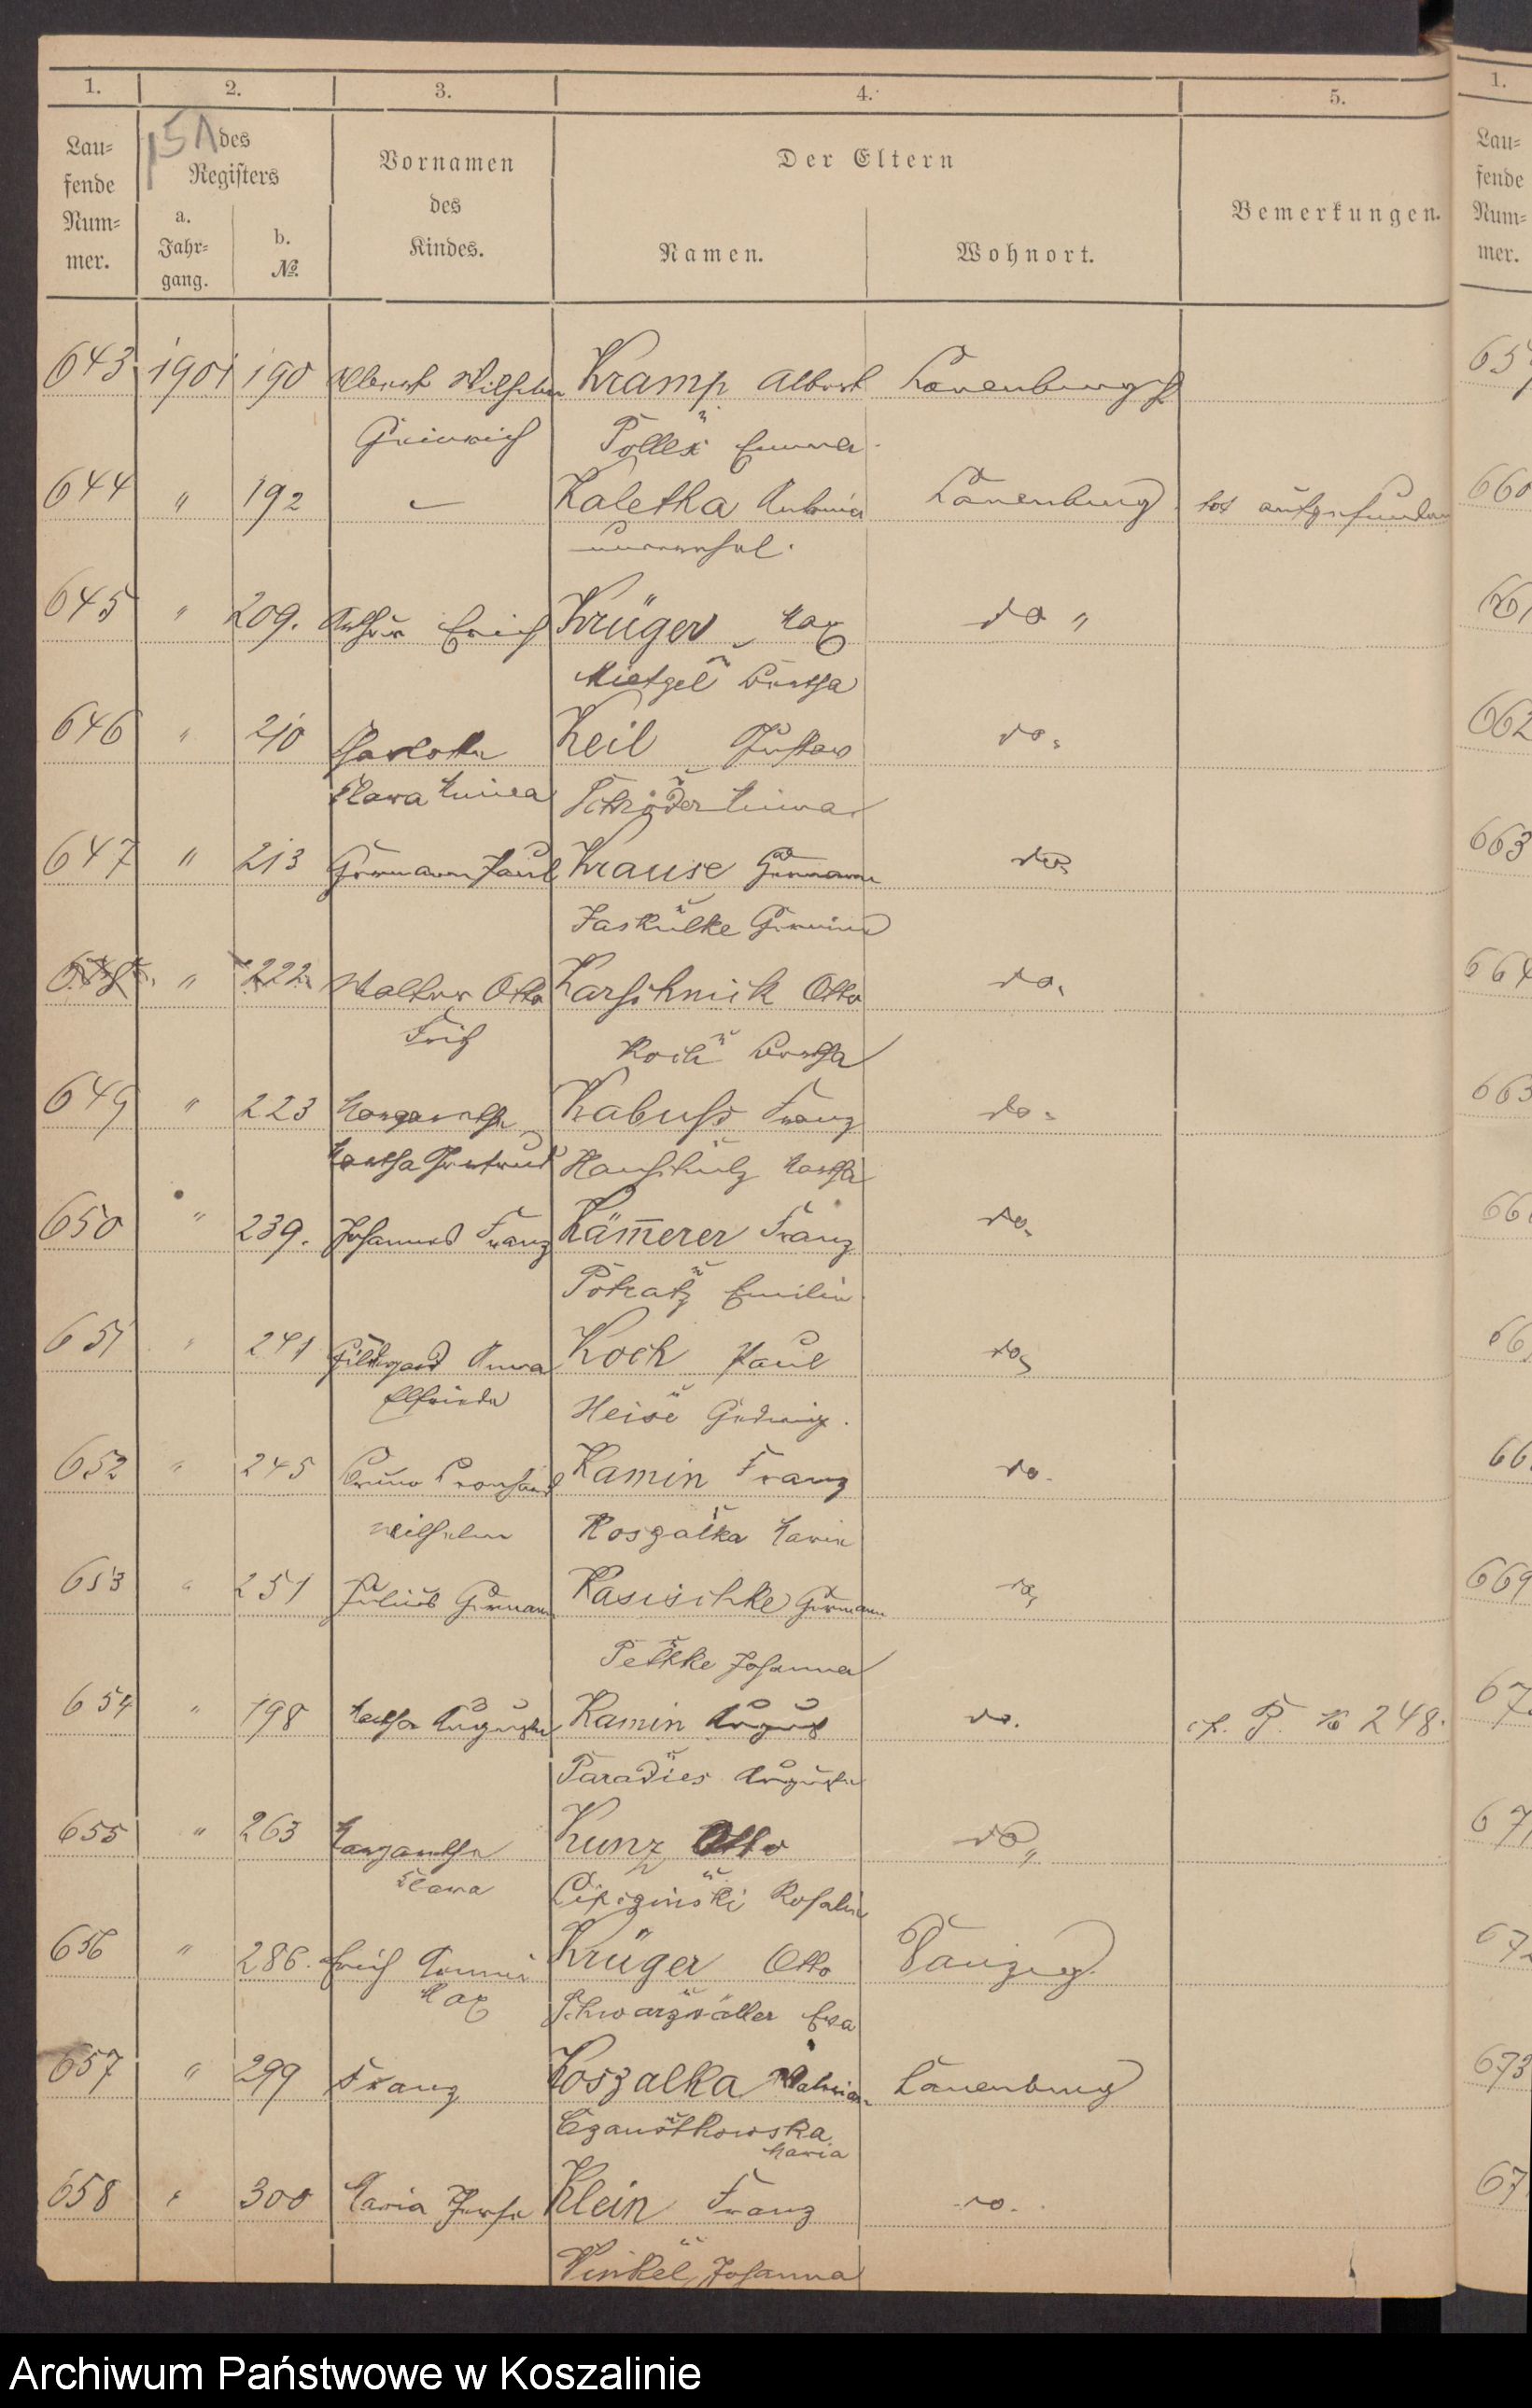 1. 2. 3. 4. 5.
Lau=
fende
Num=
mer.
15A des
Registers
a.
Jahr=
gang.
b.
№.
Vornamen
des
Kindes.
Der Eltern
Namen. Wohnort.
Bemerkungen.
643 1901 190 Albert Wilhelm Kramp Albert Lauenburg
Heinrich Pollex Emma
644 " 192 – Kaletka Lauenburg tot aufgefunden
unverehel.
645 " 209. Arthur Erich Krüger Max do "
Mietzel Bertha
646 " 210 Charlotte Keil Gustav do.
Clara Schröder
647 " 213 Hermann Paul Krause Hermann do
Jaskulke
648 " 222 Walter Otto Karschnick Otto do.
Fritz Koch Bertha
649 " 223 Margarethe Kabuss Franz do.
Martha Gertrud Martha
650 " 239. Johannes Franz Kämerer Franz do.
Potratz Emilie
651 " 241 Hildegard Anna Koch Paul do
Elfriede Heise Hedwig.
652 " 245 Bruno Bernhard Kamin Franz do.
Wilhelm Koszalka Marie
653 " 251 Julius Hermann Kasischke Hermann do
Pethke Johanna
654 " 198 Martha Auguste Kamin August do. cf. P. № 248.
Paradies Auguste
655 " 263 Margarethe Kunz Otto do "
Clara Rosalie
656 " 286. Erich Krüger Otto Danzig.
Max Schwarzwäller Eva
657 " 299 Franz Koszalka Lauenburg
Czaustkowska
Maria
658 " 300 Maria Klein Franz do.
Winkel Johanna
1.
Lau=
fende
Num=
mer.
660
661
662
663
664
669
673
Archiwum Państwowe w Koszalinie